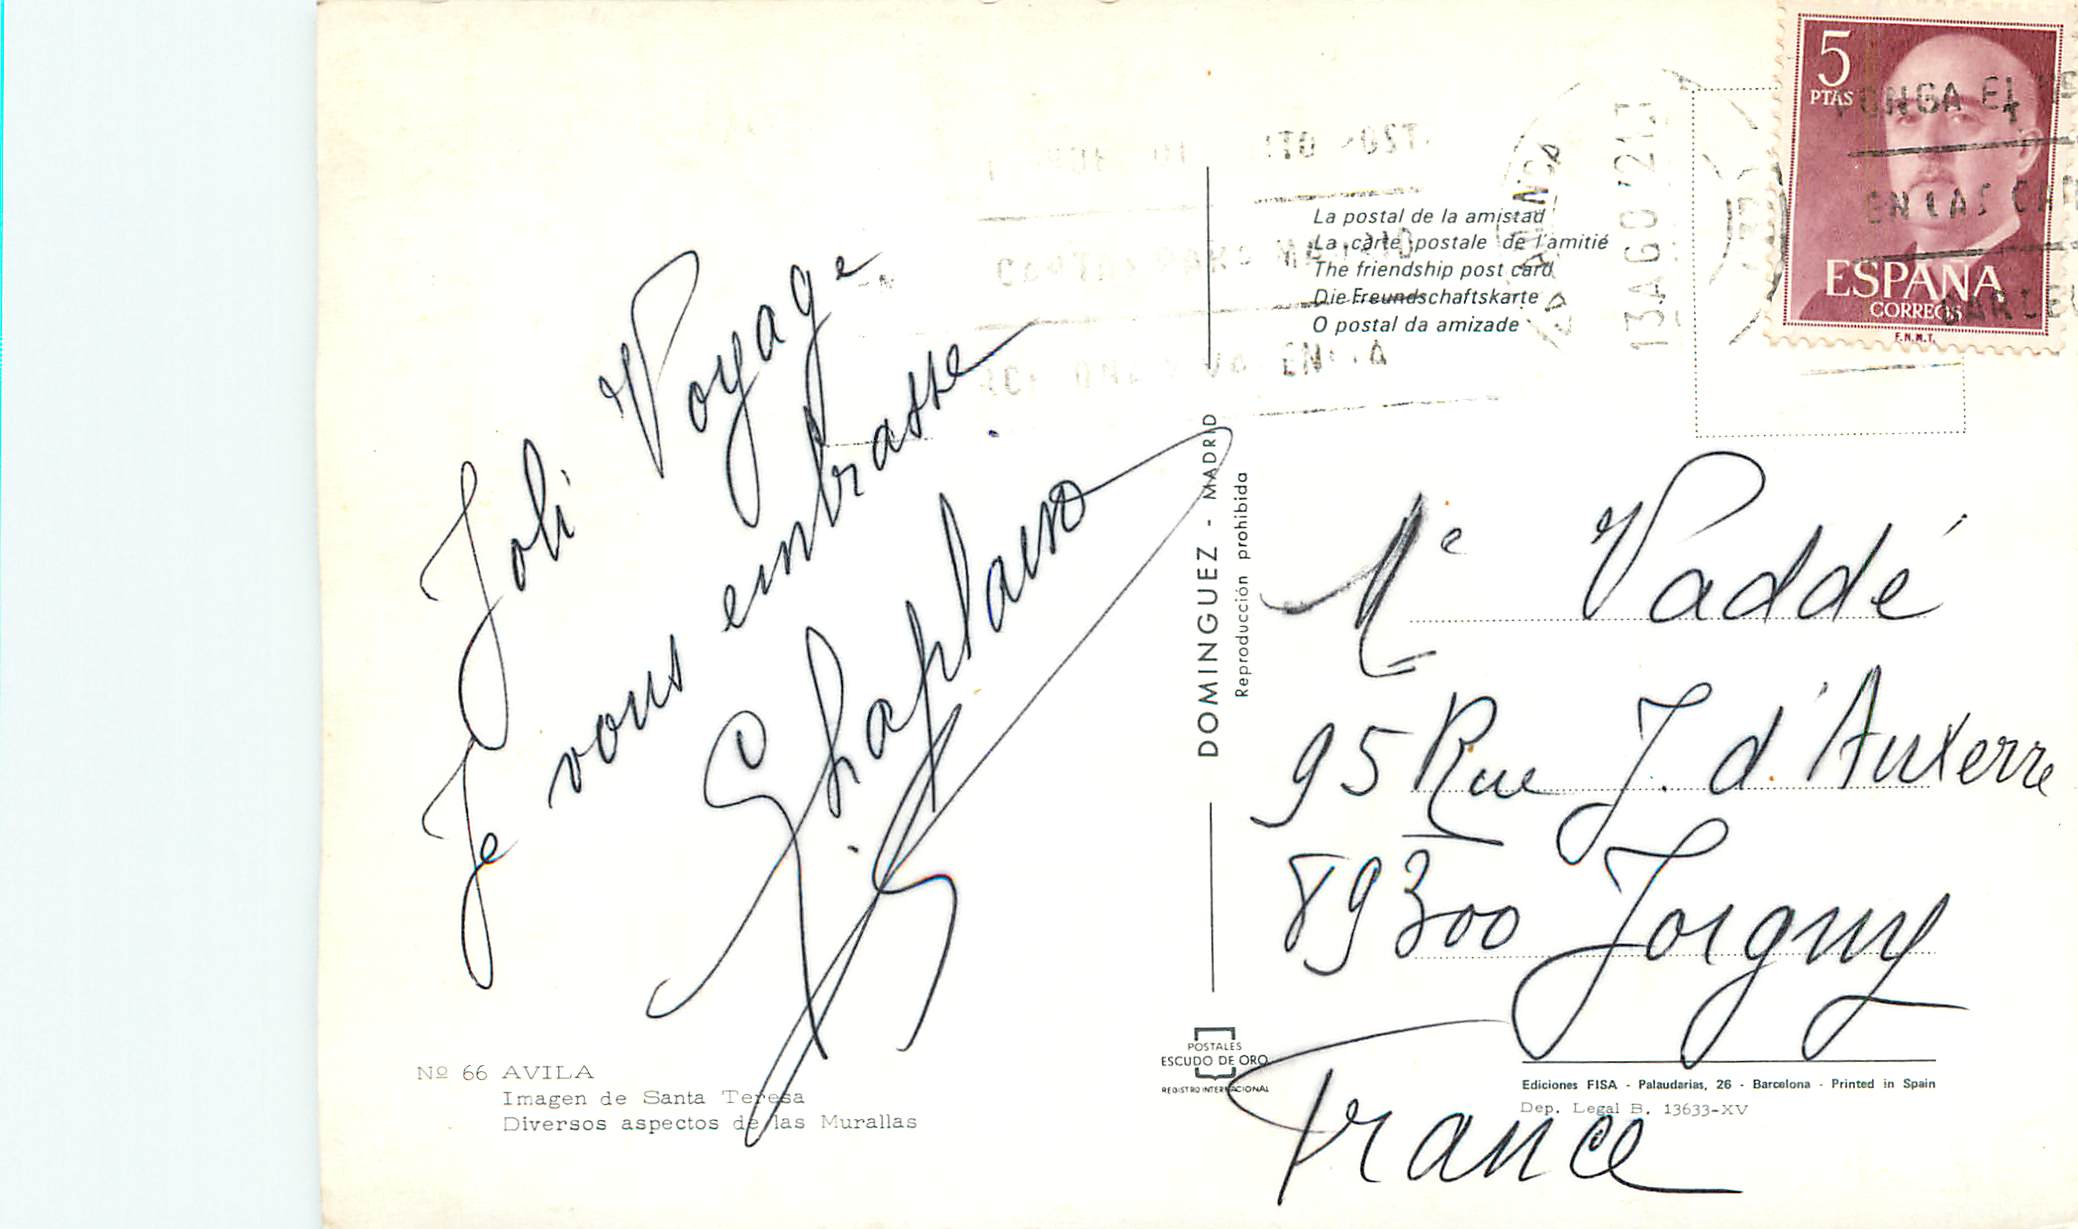 Joli Voyage
Je vous embrasse
Nº 66 AVILA
Imagen de Santa Teresa
Diversos aspectos de las Murallas
DOMINGUEZ - MADRID
Reproducción prohibida
POSTALES
ESCUDO DE ORO
REGISTRO INTERNACIONAL
La postal de la amistad
La carte postale de l'amitié
The friendship post card
Die Freundschaftskarte
O postal da amizade
13 AGO 72
5
PTAS
ESPAÑA
CORREOS
F.N.M.T.
PONGA EL
EN LAS
Mᵉ Vaddé
95 Rue J. d'Auxerre
89300 Joigny
France
Ediciones FISA - Palaudarias, 26 - Barcelona - Printed in Spain
Dep. Legal B. 13633-XV